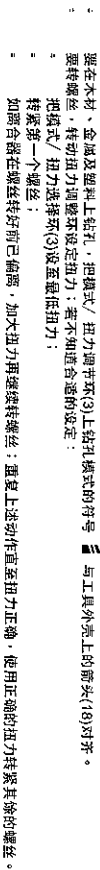 要在木材、金属及塑料上钻孔，把模式/ 扭力调节环(3)上钻孔模式的符号 与工具外壳上的箭头(18)对齐。
要转螺丝，转动扭力调整环设定扭力；若不知道合适的设定：
把模式/ 扭力选择环(3)设至最低扭力；
转紧第一个螺丝；
如离合器在螺丝转好前已偏离，加大扭力再继续转螺丝；重复上述动作直至扭力正确，使用正确的扭力转紧其馀的螺丝。